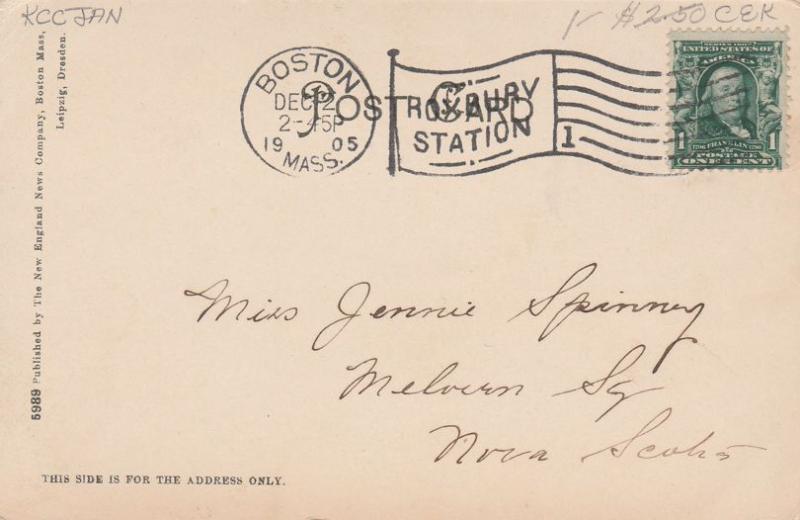 KCC JAN
1- $2.50 CEK
5989 Published by The New England News Company, Boston Mass,
Leipzig, Dresden.
BOSTON
DEC 2
2-45P
19 05
MASS.
POST CARD
ROXBURY
STATION
1
SERIES 1902
UNITED STATES OF
AMERICA
FRANKLIN
1 POSTAGE 1
ONE CENT
Miss Jennie Spinney
Melvern Sq
Nova Scotia
THIS SIDE IS FOR THE ADDRESS ONLY.